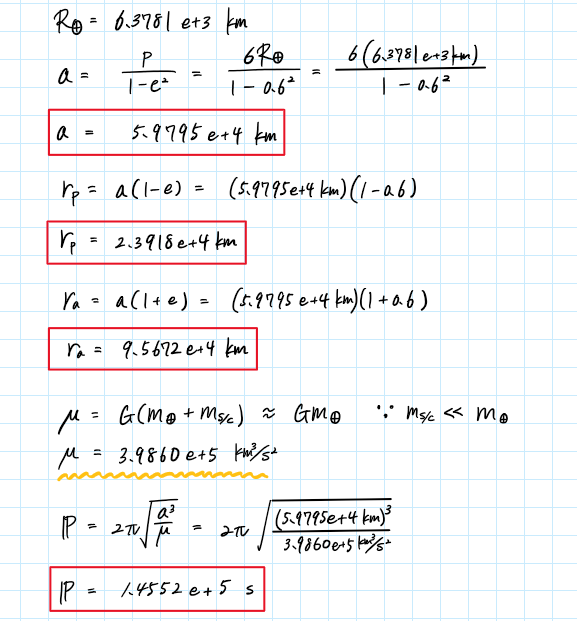 R⊕ = 6.3781 e+3 km
a = p / (1-e²) = 6R⊕ / (1 - 0.6²) = 6(6.3781 e+3 km) / (1 - 0.6²)
a = 5.9795 e+4 km
rp = a(1-e) = (5.9795e+4 km)(1-0.6)
rp = 2.3918e+4 km
ra = a(1+e) = (5.9795 e+4 km)(1+0.6)
ra = 9.5672 e+4 km
μ = G(m⊕ + ms/c) ≈ Gm⊕ ∵ ms/c << m⊕
μ = 3.9860 e+5 km³/s²
ℙ = 2π√(a³/μ) = 2π√((5.9795e+4 km)³ / 3.9860e+5 km³/s²)
ℙ = 1.4552 e+5 s